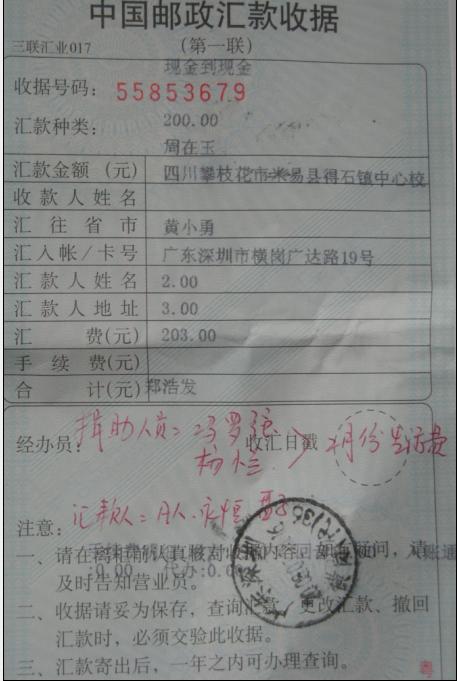 中国邮政汇款收据
三联汇业017
(第一联)
现金到现金
收据号码: 55853679
汇款种类: 200.00
周在玉
汇款金额 (元) 四川攀枝花市米易县得石镇中心校
收款人姓名
汇往省市 黄小勇
汇入帐/卡号 广东深圳市横岗广达路19号
汇款人姓名 2.00
汇款人地址 3.00
汇 费(元) 203.00
手续费(元)
合 计(元) 郑浩发
经办员: 捐助人员: 冯罗强
收汇日戳
月份生活费
注意: 汇款人:
一、请在离柜前认真核对收据内容回如有疑问,请
及时告知营业员。
:0.00, 代办:0.0
二、收据请妥为保存,查询汇款、更改汇款、撤回
汇款时,必须交验此收据。
三、汇款寄出后,一年之内可办理查询。
粤